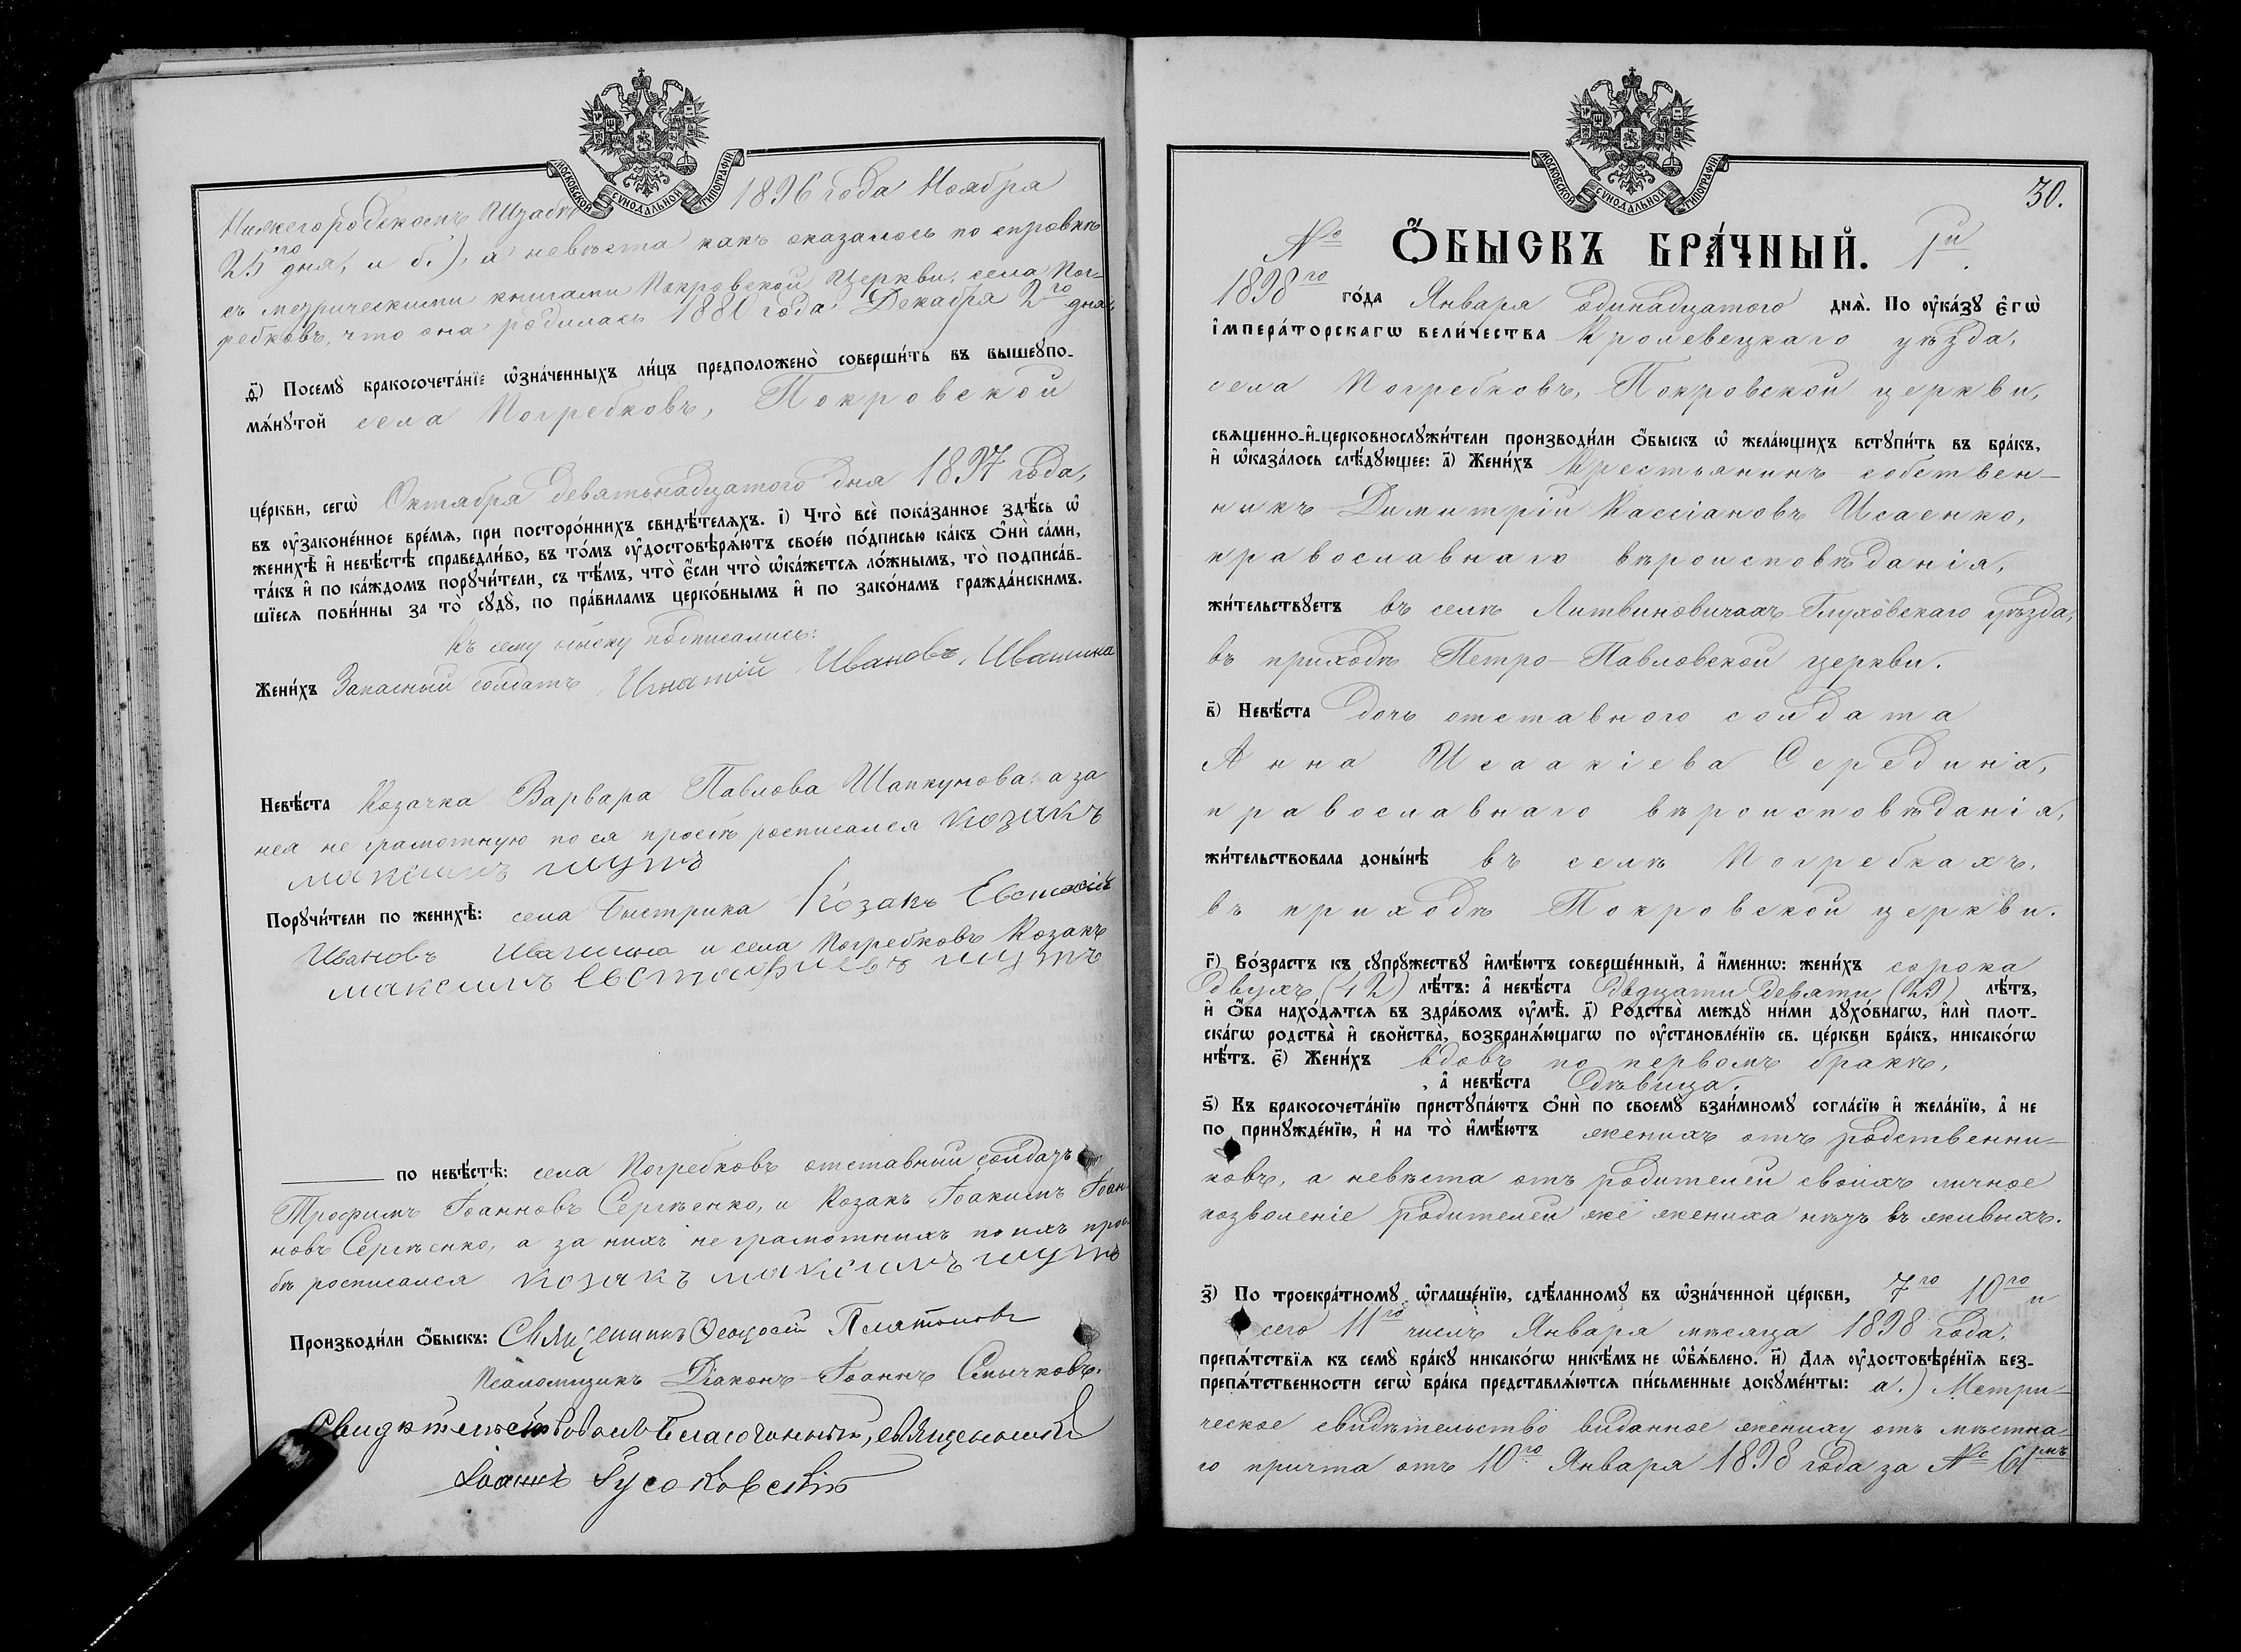 МОСКОВСКОЙ СУНОДАЛЬНОЙ ТИПОГРАФІИ
Нижегородскомъ 1896 года Ноября
25го дня, и б.), а невѣста какъ оказалось по справкѣ
съ метрическими книгами Покровской Церкви, села Пог-
ребковъ, что она родилась 1880 года Декабря 2го дня
д҃) Посемꙋ̀ бракосочета́нїе ѡ҆зна́ченныхъ ли́цъ предположено̀ соверши́ть въ вышеꙋпо-
мѧ́нꙋтой села Погребковъ, Покровской
це́ркви, сегѡ̀ Октября девятьнадцатого дня 1897 года,
въ ᲂу҆законе́нное вре́мѧ, при посторо́ннихъ свидѣ́телѧхъ. і҃) Что̀ всѐ пока́занное здѣ́сь ѡ҆
женихѣ̀ и҆ невѣ́стѣ справедли́во, въ то́мъ ᲂу҆достовѣрѧ́ютъ свое́ю по́дписью ка́къ ѻ҆нѝ са́ми,
та́къ и҆ по ка́ждомъ порꙋчи́тели, съ тѣ́мъ, что̀ є҆́сли что̀ ѡ҆ка́жетсѧ ло́жнымъ, то̀ подписа́в-
шїесѧ пови́нны за то̀ сꙋдꙋ̀, по пра́виламъ церко́внымъ и҆ по зако́намъ гражда́нскимъ.
Къ сему обыску подписались:
Жени́хъ Запасный солдатъ Игнатій Ивановъ Ивашина
Невѣ́ста Козачка Варвара Павлова Шапкунова, а за
нея не грамотную по ея прозьбѣ росписался козакъ
максимъ шутъ
Порꙋчи́тели по женихѣ̀: села Быстрика Козакъ Евстафій
Ивановъ Ивашина и села Погребковъ Козакъ
максимъ Евстафиевъ шутъ
по невѣ́стѣ: села Погребковъ отставный солдатъ
Трофимъ Іоанновъ Сергѣенко, и Козакъ Іоакимъ Іоан-
новъ Сергѣенко, а за нихъ не грамотныхъ по ихъ прось-
бѣ росписался козакъ максимъ шутъ
Производи́ли ѻ҆́быскъ: Священникъ Ѳеодосій Платоновъ
Псаломщикъ Діаконъ Іоаннъ Смычковъ.
Свидѣтельствовалъ Благочинный, священникъ
Іоаннъ Гусаковскій
МОСКОВСКОЙ СУНОДАЛЬНОЙ ТИПОГРАФІИ
30.
№ Ѻ҆́БЫСКЪ БРА́ЧНЫЙ. 1й.
1898го го́да Января одинадцатого днѧ̀. По ᲂу҆ка́зꙋ Є҆гѡ̀
і҆мпера́торскагѡ вели́чества Кролевецкаго уѣзда,
села Погребковъ, Покровской церкви,
свѧщенно-и҆-церковнослꙋжи́тели производи́ли ѻ҆́быскъ ѡ҆ жела́ющихъ встꙋпи́ть въ бра́къ,
и҆ ѡ҆каза́лось слѣ́дꙋющее: а҃) Жени́хъ Крестьянинъ собствен-
никъ Димитрій Кассіановъ Исаенко,
православнаго вѣроисповѣданія,
жи́тельствꙋетъ въ селѣ Литвиновичахъ Глуховскаго уѣзда,
въ приходѣ Петро-Павловской церкви.
в҃) Невѣ́ста дочь отставного солдата
Анна Исаакіева Середина,
православнаго вѣроисповѣданія,
жи́тельствовала доны́нѣ въ селѣ Погребкахъ,
въ приходѣ Покровской церкви.
г҃) Во́зрастъ къ сꙋпрꙋ́жествꙋ и҆мѣ́ютъ соверше́нный, а҆ и҆́меннѡ: жени́хъ сорока
двухъ (42) лѣ́тъ: а҆ невѣ́ста двадцати девяти (29) лѣ́тъ,
и҆ ѻ҆́ба нахо́дѧтсѧ въ здра́вомъ ᲂу҆мѣ̀. д҃) Родства̀ междꙋ̀ ни́ми дꙋхо́внагѡ, и҆лѝ плот-
ска́гѡ родства̀ и҆ свойства̀, возбранѧ́ющагѡ по ᲂу҆становле́нїю св. це́ркви бра́къ, никако́гѡ
нѣ́тъ. є҃) Жени́хъ вдовъ по первомъ бракѣ,
, а҆ невѣ́ста дѣвица.
ѕ҃) Къ бракосочета́нїю пристꙋпа́ютъ ѻ҆нѝ по своемꙋ̀ взаи́мномꙋ согла́сїю и҆ жела́нїю, а҆ не
по принꙋжде́нїю, и҆ на то̀ и҆мѣ́ютъ женихъ отъ родственни-
ковъ, а невѣста отъ родителей своихъ личное
позволеніе родителей же жениха нѣтъ въ живыхъ.
з҃) По троекра́тномꙋ ѡ҆глаше́нїю, сдѣ́ланномꙋ въ ѡ҆зна́ченной це́ркви, 7го 10го и
сего 11го числъ Января мѣсяца 1898 года,
препѧ́тствїѧ къ семꙋ̀ бра́кꙋ никако́гѡ никѣ́мъ не ѡ҆б̾ѧ́влено. и҃) Длѧ ᲂу҆достовѣре́нїѧ без-
препѧ́тственности сегѡ̀ бра́ка представлѧ́ютсѧ пи́сьменные докꙋме́нты: а.) Метри-
ческое свидѣтельство виданное жениху отъ мѣстна-
го причта отъ 10го Января 1898 года за № 6мъ